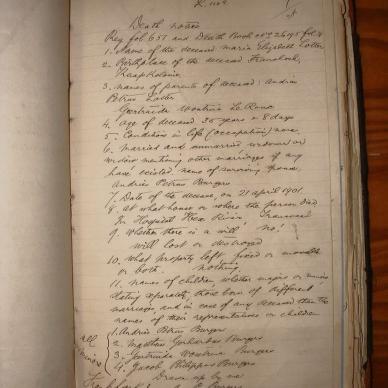 Death notice
Reg fol 651 and Death Book
1. Name of the deceased Maria Elizabeth Lotter
2. Birthplace of the deceased Franshoek,
Kaapkolonie
3. Names of parents of deceased: Andries
Petrus Lotter
Geertruida Wentria Le Roux
4. Age of deceased 35 years 8 days
5. Condition in life (occupation) none
6. Married and unmarried widower or
widow mentioning other marriages if any
have existed name of surviving spouse
Andries Petrus Burger
7. Date of the decease, on 21 april 1901
8. At what house or where the person died
In Hospital River Transvaal
9. Whether there is a will no!
will lost or destroyed
10. What property left, fixed or movable
or both. nothing
11. Names of children, whether majors or minors
stating separately, those born of different
marriages and in case of any deceased then the
names of their representatives or children
1. Andries Petrus Burger
2. Matthew Gerhardus Burger
3. Geertruida Wentria Burger
4. Jacob Philippus Burger
Drawn up by me
Burger